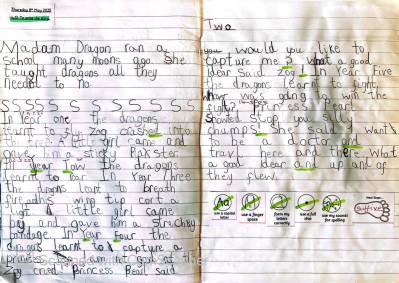 Thursday 8th May 2025
Madam Dragon ran a
School many moons ago. She
taught dragons all they
need to no.
SSSSS S S S S S S S
In year one the dragons
learnt to fly Zog crashed into
the tree A little girl came and
gave him a sticky
In year Tow the dragons
learnt to Year three
the dragons start to breath
fire wing tip cort a
light A little girl came
by and gave him a
bandage In Year Four the
dragons learnt to capture a
princess I am not good at this
Zog cried Princess Pearl said
Two
you would you like to
capture me what a good
idear said Zog In Year Five
the dragons learnt to fight
going to win the
fight? Princess Pearl
Showed Stop you silly
chumps She said I want
to be a doctor and
travl here and there What
a good idear and up and of
they flew.
use a capital letter
use a finger space
form my letters correctly
use a full stop
use my sounds for spelling
suffixes